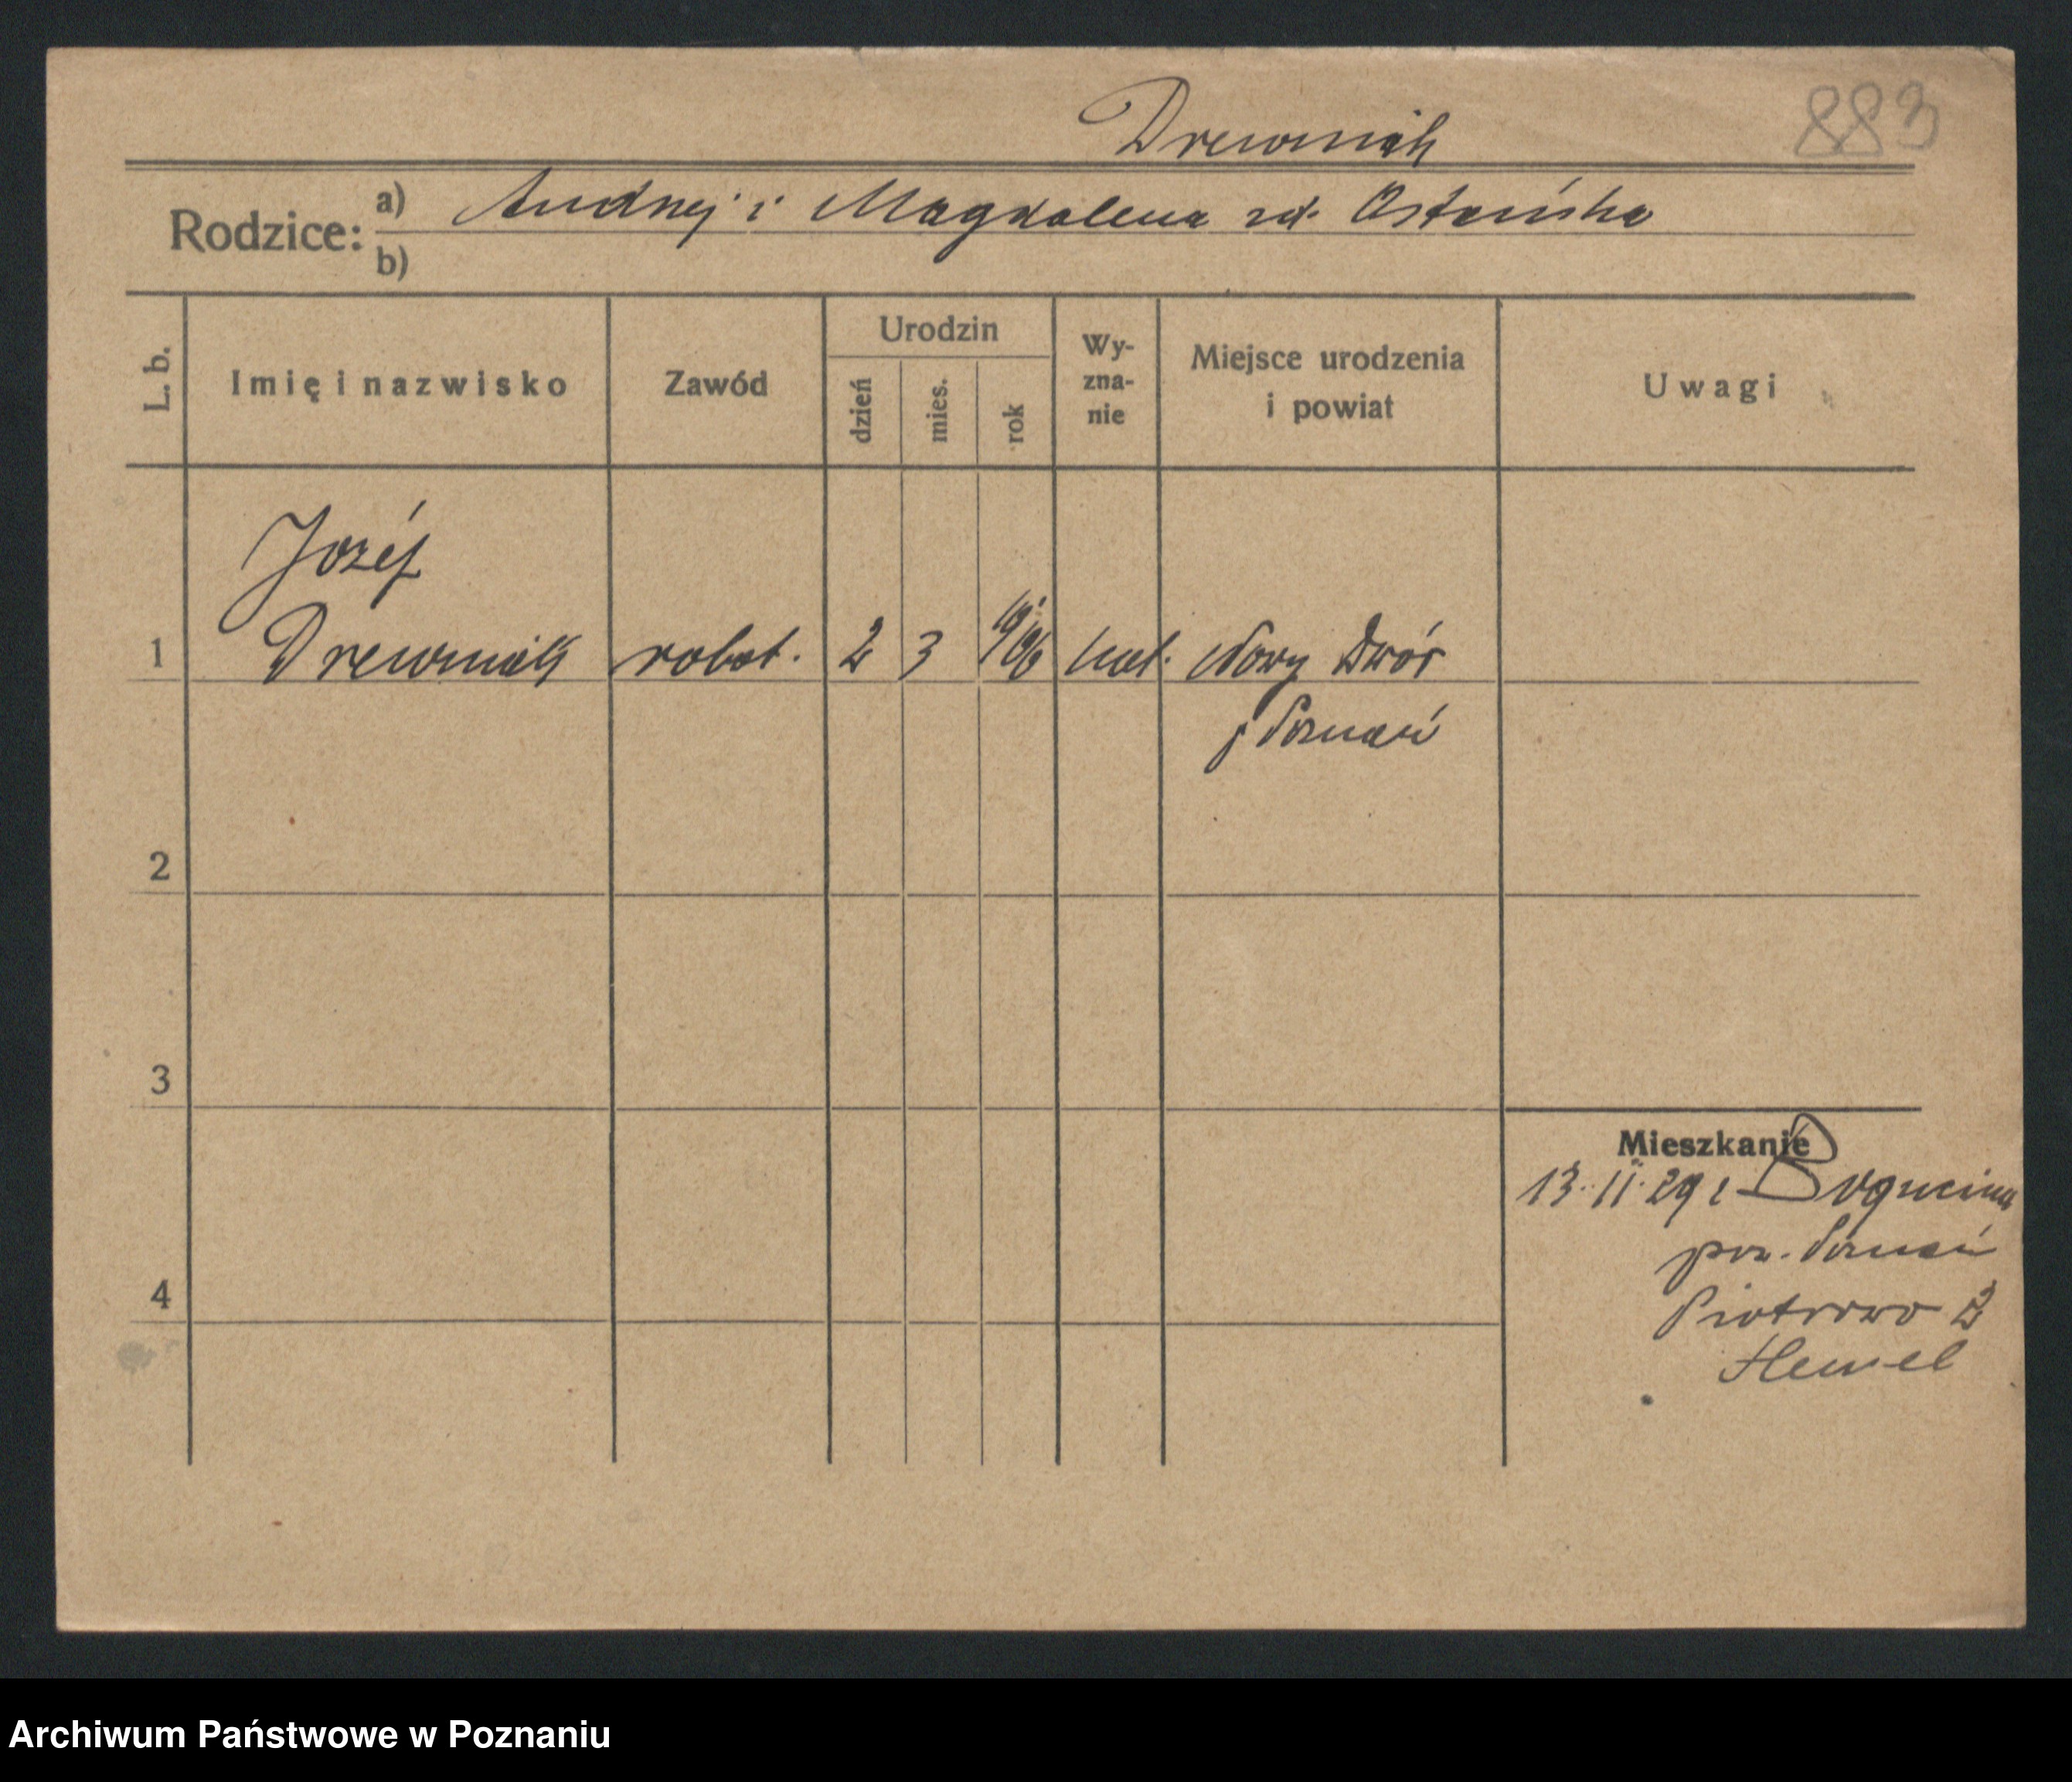 Drewniak 883
Rodzice: a) Andrzej i Magdalena zd. Ostańska
b)
L. b. Imię i nazwisko Zawód Urodzin dzień mies. rok Wy-zna-nie Miejsce urodzenia i powiat Uwagi
Józef
1 Drewniak robot. 2 3 1906 kat. Nowy Dwór
p Poznań
2
3
Mieszkanie
13.11.29 z Bogucina
pow. Poznań
4 Piotrowo 2
Hensel
Archiwum Państwowe w Poznaniu